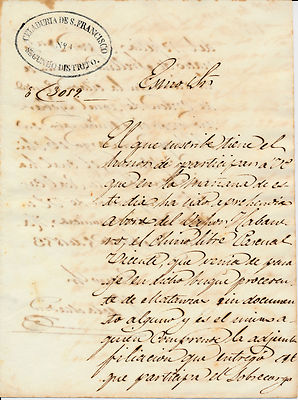 CELADURIA DE S. FRANCISCO
Nº 1
SEGUNDO DISTRITO.
Esmo. Sr.
El que suscribe tiene el
honor de participar a VE
que en la mañana de es-
te dia ha sido
a bordo del Vapor Habane-
ro, el chino libre Pascual
Vicente, que venia de pasa-
je en dicho buque proceden-
te de Matanzas sin documen-
to alguno y es el mismo a
quien comprende la adjunta
filiacion que entrego al
que participa el Sobrecargo